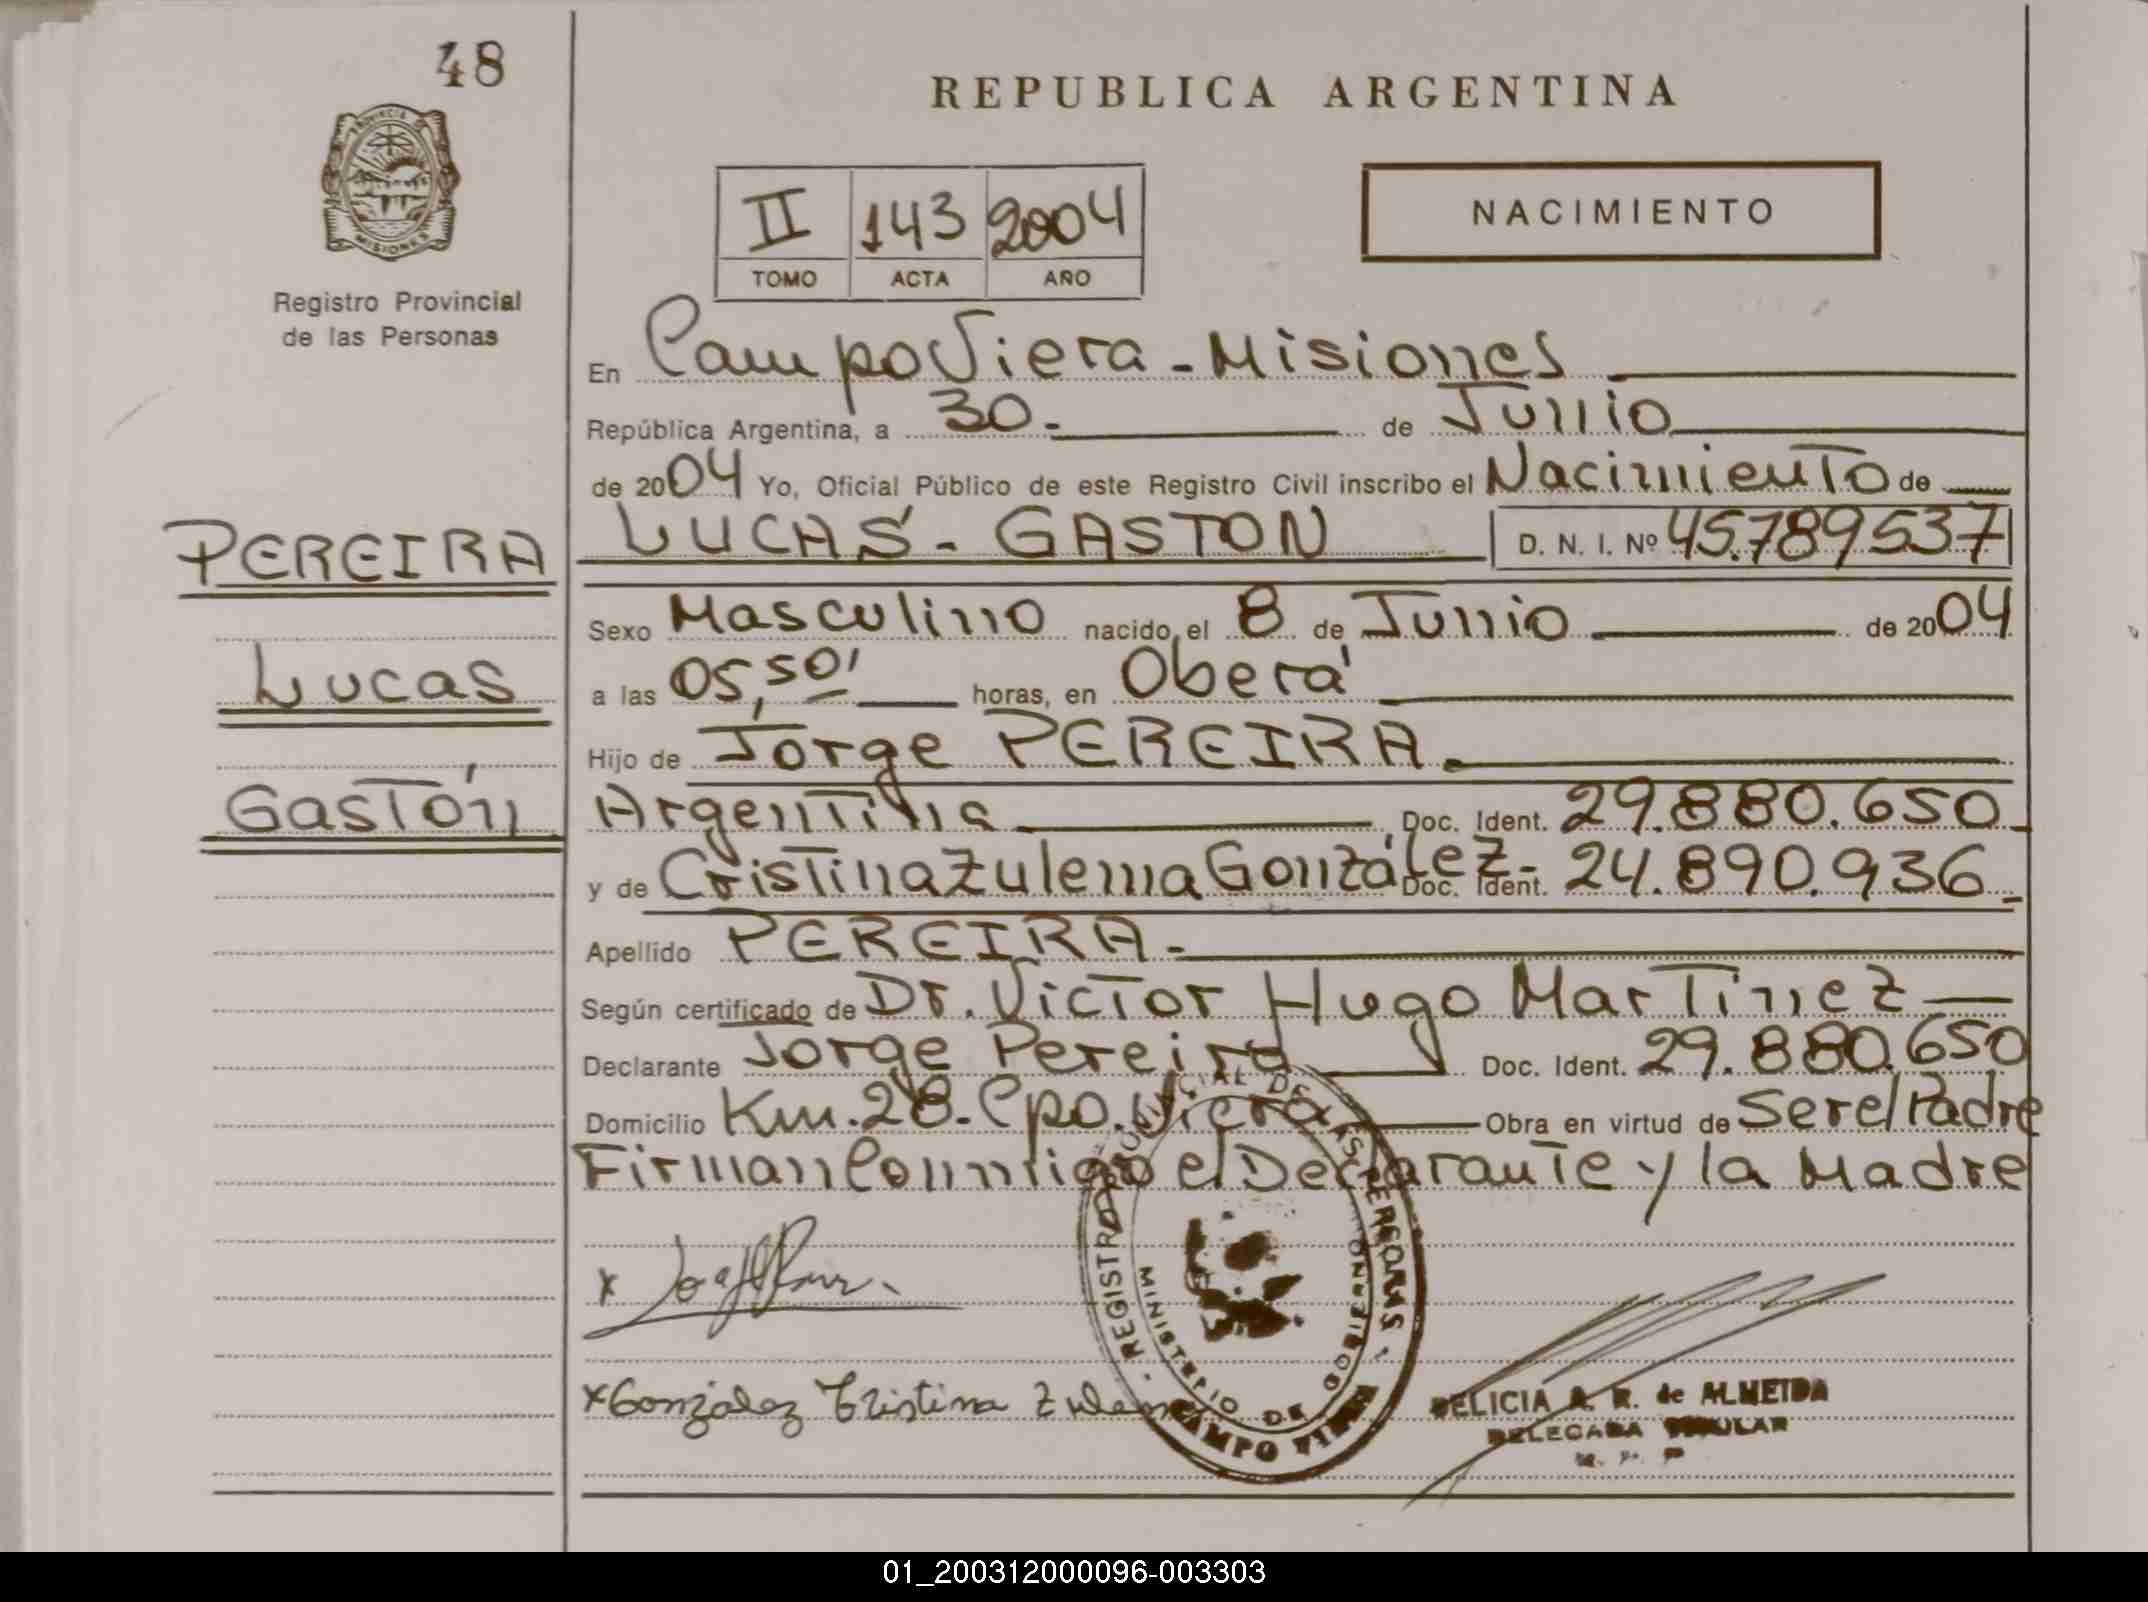 48
PROVINCIA DE
MISIONES
Registro Provincial
de las Personas
PEREIRA
Lucas
Gastón
REPUBLICA ARGENTINA
II 143 2004
TOMO ACTA AÑO
NACIMIENTO
En Campo Viera - Misiones
República Argentina, a 30.- de Junio
de 2004 Yo, Oficial Público de este Registro Civil inscribo el Nacimiento de
LUCAS - GASTON D. N. I. Nº 45.789537
Sexo Masculino nacido el 8 de Junio de 2004
a las 05,50' horas, en Oberá
Hijo de Jorge PEREIRA.
Argentina Doc. Ident. 29.880.650-
y de Cristina Zulema González- Doc. Ident. 24.890.936-
Apellido PEREIRA-
Según certificado de Dr. Victor Hugo Martinez
Declarante Jorge Pereira Doc. Ident. 29.880.650
Domicilio Km. 28. Cpo. Viera Obra en virtud de Ser el Padre
Firman Conmigo el Declarante y la Madre
x
x González Cristina Zulema
REGISTRO PROVINCIAL DE LAS PERSONAS
MINISTERIO DE GOBIERNO
CAMPO VIERA
DELICIA A. R. de ALMEIDA
DELEGADA TITULAR
01_200312000096-003303